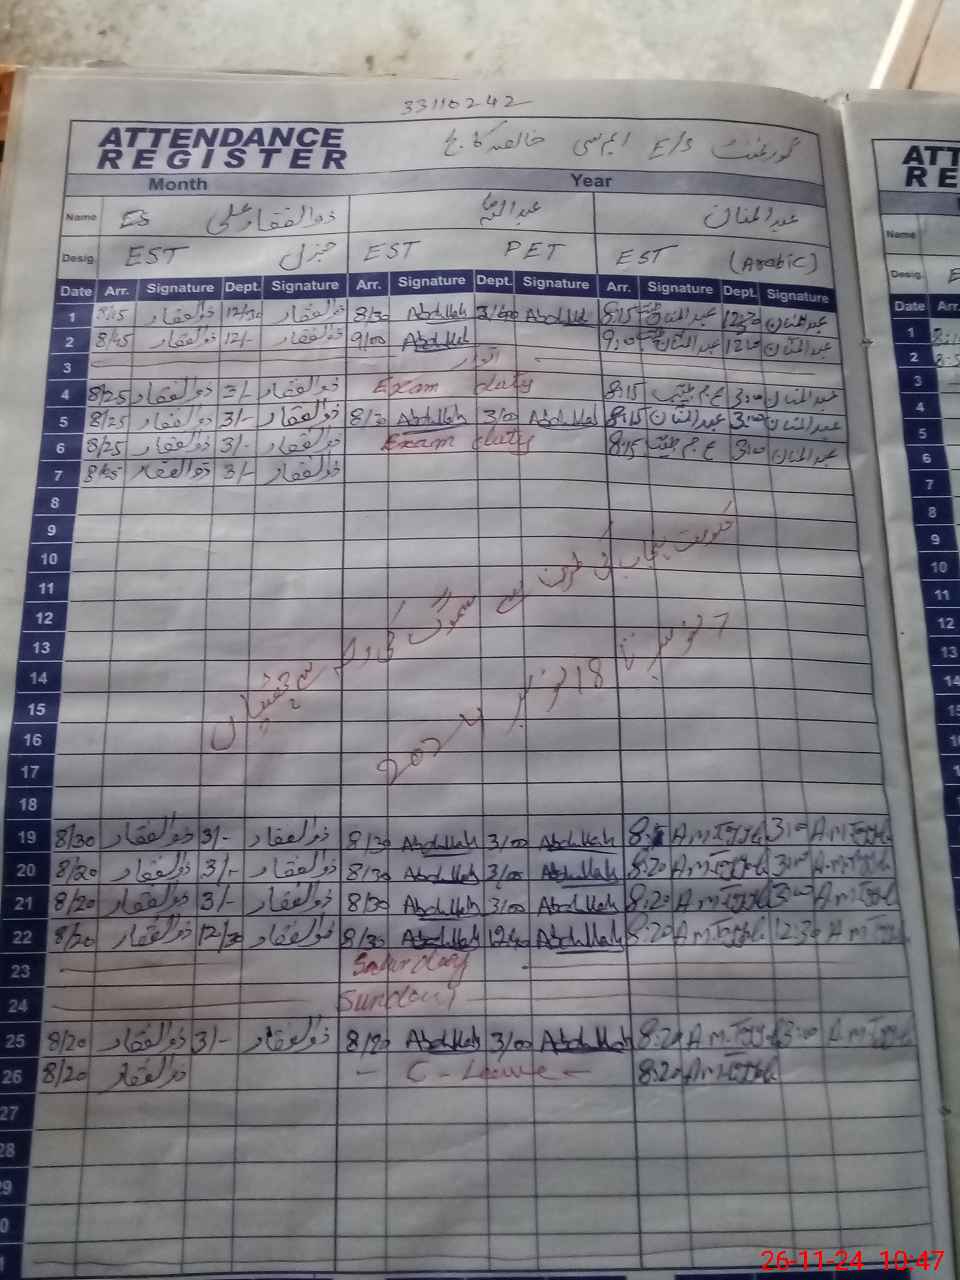 33110242
ATTENDANCE
REGISTER
گورنمنٹ E/S ایم سی خالصہ کالج
Month Year
Name ES ذوالفقار علی عبداللہ عبدالمنان
Desig. EST جنرل EST PET EST (Arabic)
Date Arr. Signature Dept. Signature Arr. Signature Dept. Signature Arr. Signature Dept. Signature
1 8/45 ذوالفقار 12/30 ذوالفقار 8/30 Abdullah 3/40 Abdullah 8:15 عبدالمنان 12:30 عبدالمنان
2 8/45 ذوالفقار 12/- ذوالفقار 9/00 Abdullah 9:00 عبدالمنان عبدالمنان
3 اتوار
4 8/25 ذوالفقار 3/- ذوالفقار Exam duty 8:15 3:00 عبدالمنان
5 8/25 ذوالفقار 3/- ذوالفقار 8/30 Abdullah 3/00 Abdullah 8:15 عبدالمنان 3:00 عبدالمنان
6 8/25 ذوالفقار 3/- ذوالفقار Exam duty 8:15 3:00 عبدالمنان
7 8/25 ذوالفقار 3/- ذوالفقار
8
9
10
11
حکومت پنجاب کی طرف سے سموگ کی وجہ سے چھٹیاں
12
13
7 نومبر تا 18 نومبر 2024
14
15
16
17
18
19 8/30 ذوالفقار 3/- ذوالفقار 8/30 Abdullah 3/00 Abdullah 3:00
20 8/20 ذوالفقار 3/- ذوالفقار 8/30 Abdullah 3/00 Abdullah 8:20 3:00
21 8/20 ذوالفقار 3/- ذوالفقار 8/30 Abdullah 3/00 Abdullah 8:20 3:00
22 8/20 ذوالفقار 12/30 ذوالفقار 8/30 Abdullah Abdullah 8:20 12:30
23 Saturday
24 Sunday
25 8/20 ذوالفقار 3/- ذوالفقار 8/20 Abdullah 3/00 Abdullah 8:20 3:00
26 8/20 ذوالفقار - C - Leave - 8:20
27
28
ATT
RE
Name
Desig. E
Date Arr.
1
2
3
4
5
6
7
8
9
10
11
12
13
14
26-11-24 10:47